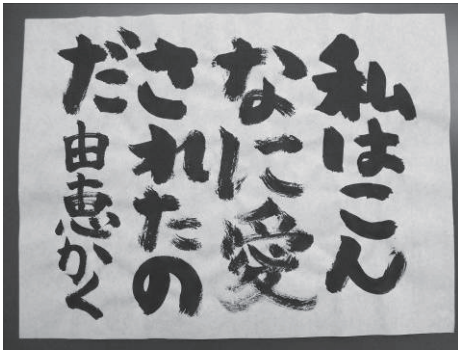 私はこん
なに愛
されたの
だ 由恵かく